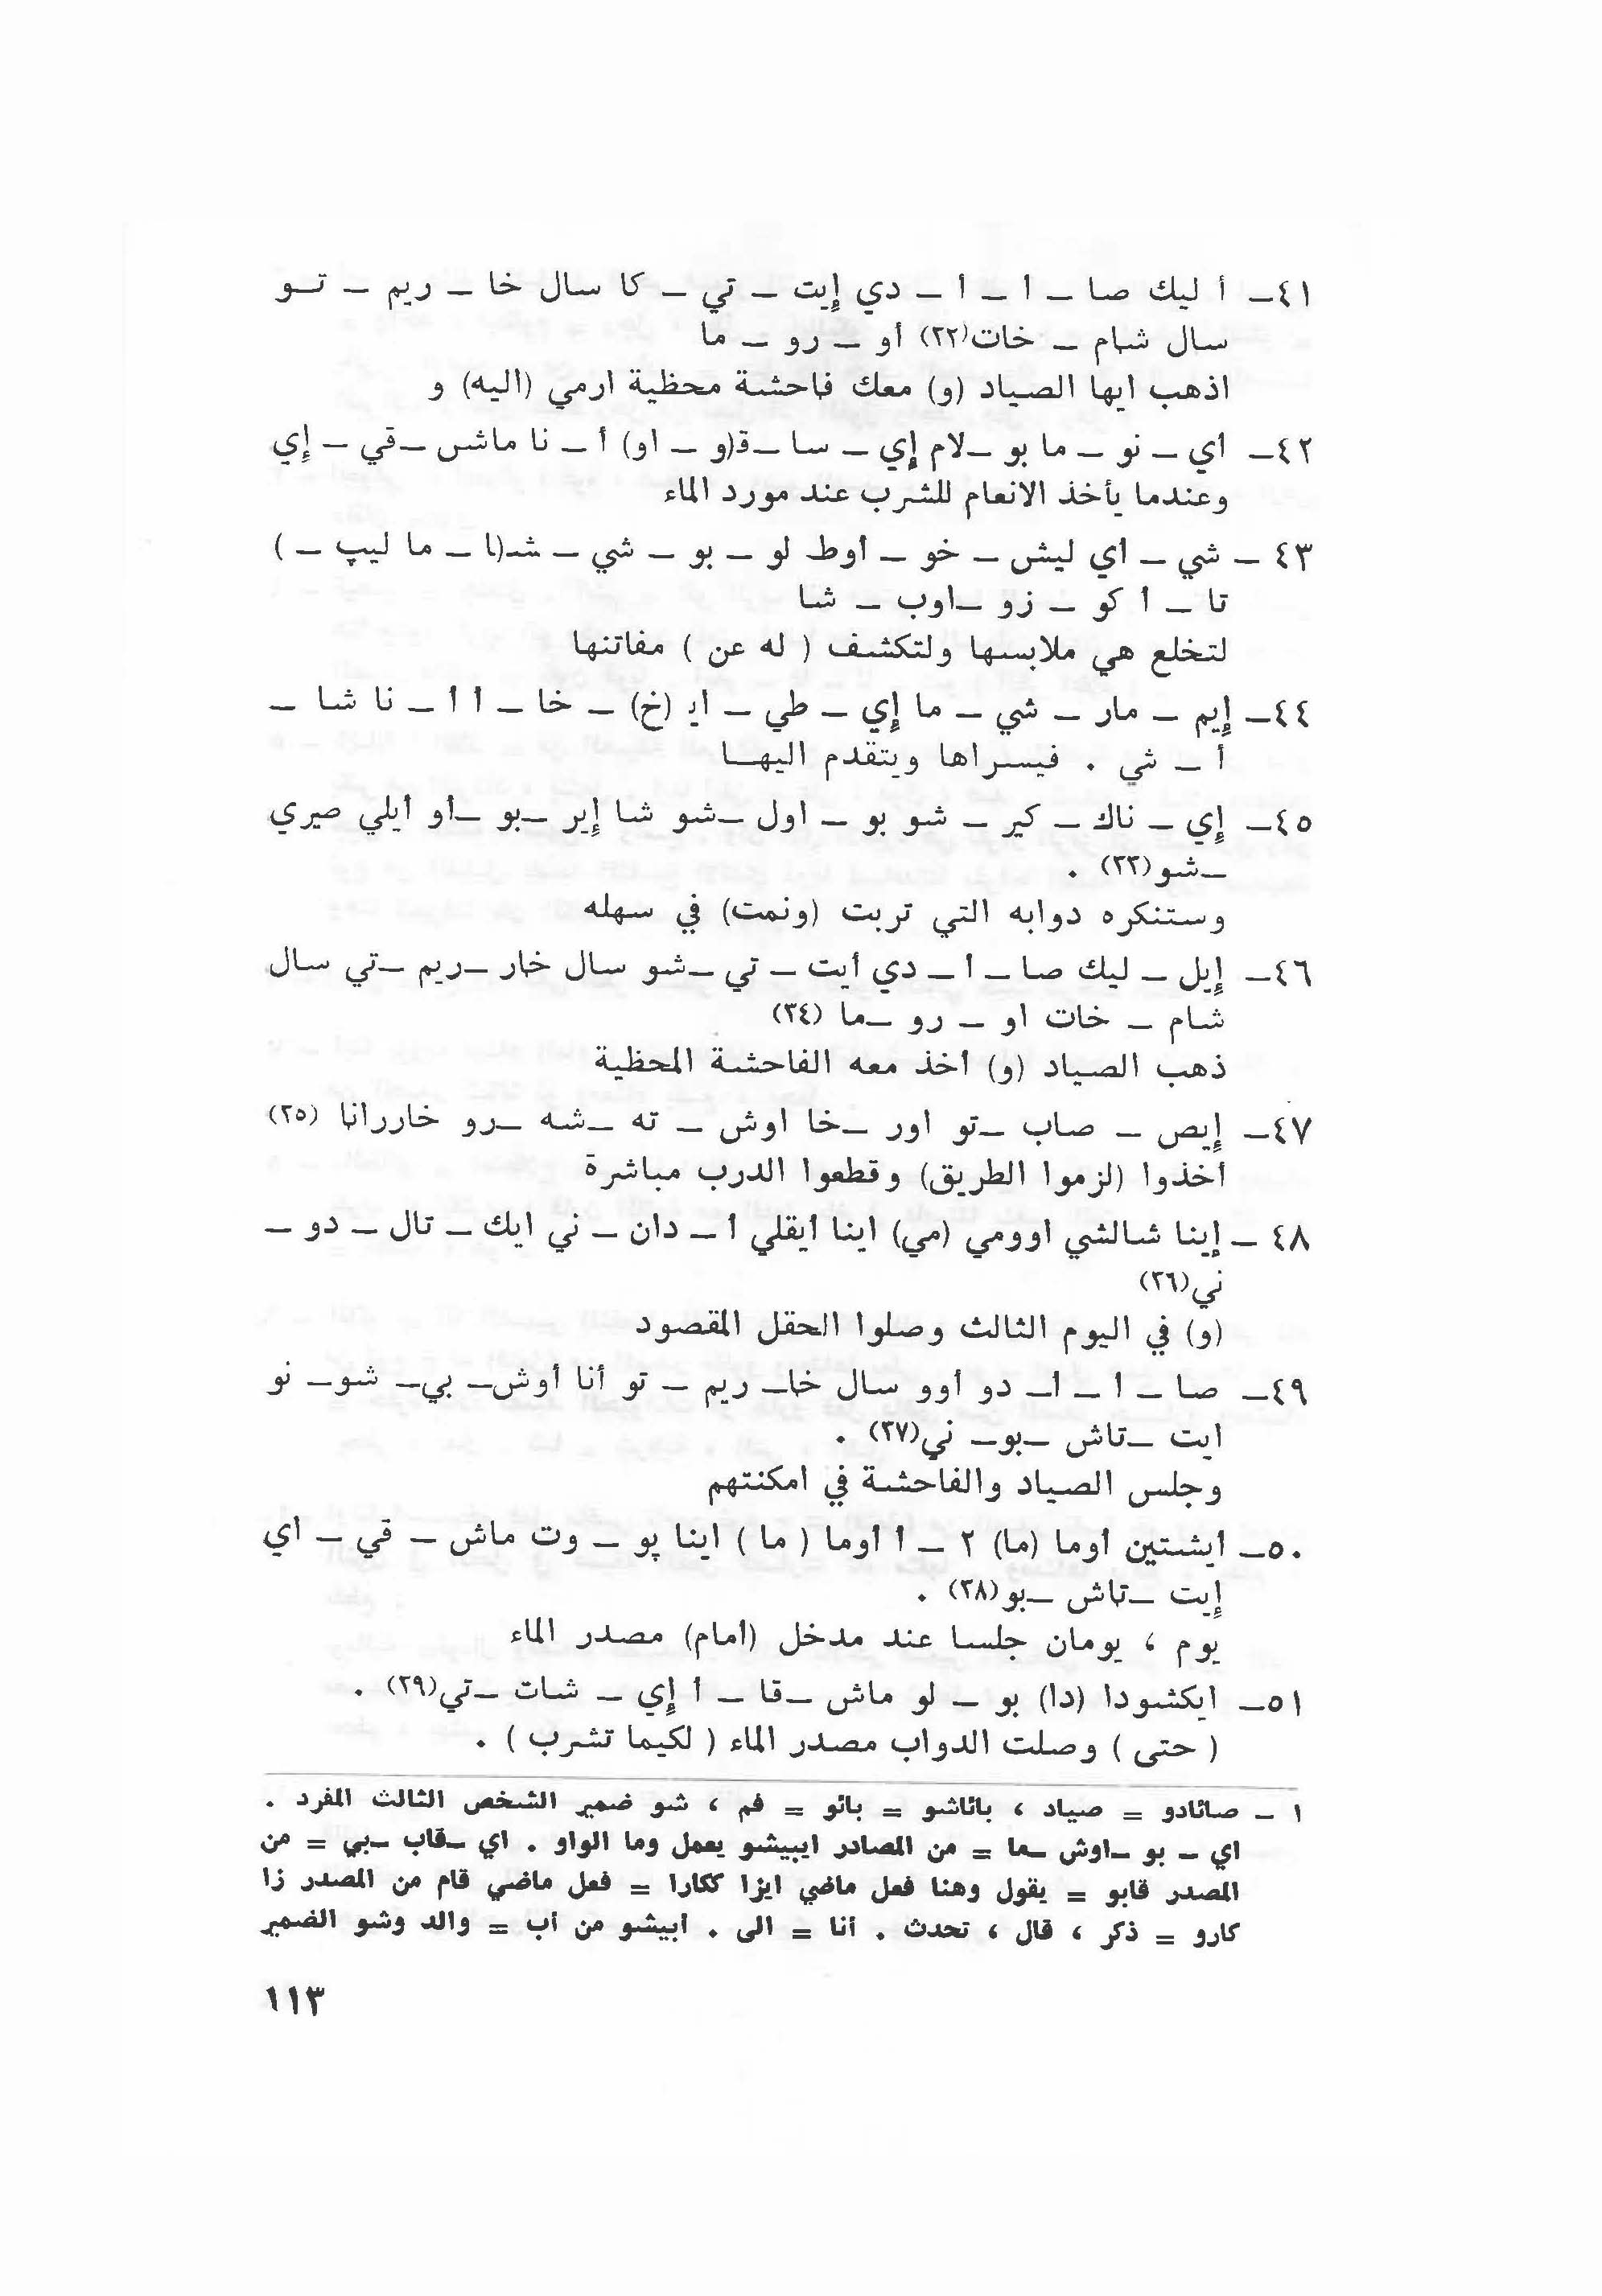 ٤١ــ أ ليك صا ــ ا ــ أ ــ دي إيت ــ تي ــ كا سال خا ــ ريم ــ تــو
سال شام ــ خات(٣٢) أو ــ رو ــ ما
اذهب ايها الصياد (و) معك فاحشة محظية ارمي (اليه) و
٤٢ــ اي ــ نو ــ ما بو ــلام إي ــ سا ــق(و ــ او) أ ــ نا ماش ــقي ــ إي
وعندما يأخذ الانعام للشرب عند مورد الماء
٤٣ ــ شي ــ اي ليش ــ خو ــ أوط لو ــ بو ــ شي ــ شـ(ا ــ ما ليپ ــ )
تا ــ أ كو ــ زو ــاوب ــ شا
لتخلع هي ملابسها ولتكشف ( له عن ) مفاتنها
٤٤ــ إيم ــ مار ــ شي ــ ما إي ــ طي ــ ايـ (خ) ــ خا ــ أ أ ــ نا شا ــ
أ ــ شي . فيسراها ويتقدم اليهـا
٤٥ــ إي ــ ناك ــ كير ــ شو بو ــ اول ــشو شا إير ــبو ــاو أيلي صيري
ــشو(٣٣) .
وستنكره دوابه التي تربت (ونمت) في سهله
٤٦ــ إيل ــ ليك صا ــ أ ــ دي أيت ــ تي ــشو سال خار ــريم ــتي سال
شام ــ خات او ــ رو ــما (٣٤)
ذهب الصياد (و) اخذ معه الفاحشة المحظية
٤٧ــ إيص ــ صاب ــتو اور ــخا اوش ــ ته ــشه ــرو خاررانا (٣٥)
أخذوا (لزموا الطريق) وقطعوا الدرب مباشرة
٤٨ ــ إينا شالشي اوومي (مي) اينا أيقلي أ ــ دان ــ ني ايك ــ تال ــ دو ــ
ني(٣٦)
(و) في اليوم الثالث وصلوا الحقل المقصود
٤٩ــ صا ــ ا ــ أــ دو أوو سال خاــ ريم ــ تو أنا أوشــ بيــ شوــ نو
ايت ــتاش ــبوــ ني(٣٧) .
وجلس الصياد والفاحشة في امكنتهم
٥٠ــ أيشتين أوما (ما) ٢ ــ أ أوما ( ما ) اينا پو ــ وت ماش ــ قي ــ اي
إيت ــتاش ــبو(٣٨) .
يوم ، يومان جلسا عند مدخل (أمام) مصدر الماء
٥١ــ ايكشودا (دا) بو ــ لو ماش ــقا ــ أ إي ــ شات ــتي(٣٩) .
( حتى ) وصلت الدواب مصدر الماء ( لكيما تشرب ) .
١ ــ صائادو = صياد ، بائاشو = بائو = فم ، شو ضمير الشخص الثالث المفرد .
اي ــ بو ــاوش ــما = من المصادر ايبيشو يعمل وما الواو . اي ــقاب ــبي = من
المصدر قابو = يقول وهنا فعل ماضي ايزا ككارا = فعل ماضي قام من المصدر زا
كارو = ذكر ، قال ، تحدث . أنا = الى . ابيشو من اب = والد وشو الضمير
١١٣